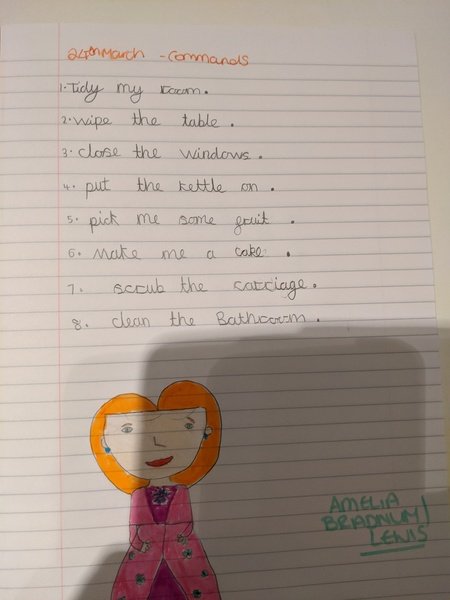 24th March - Commands
1. Tidy my room.
2. wipe the table.
3. close the windows.
4. put the kettle on.
5. pick me some fruit.
6. Make me a cake.
7. scrub the carriage.
8. clean the Bathroom.
AMELIA
BRADNUM/
LEWIS